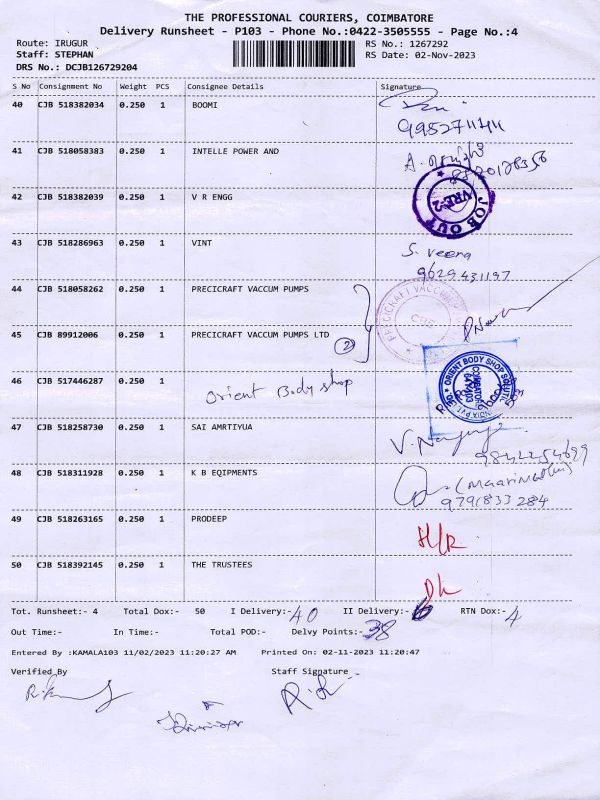 THE PROFESSIONAL COURIERS, COIMBATORE
Delivery Runsheet - P103 - Phone No.:0422-3505555 - Page No.:4
Route: IRUGUR RS No.: 1267292
Staff: STEPHAN RS Date: 02-Nov-2023
DRS No.: DCJB126729204
S No Consignment No Weight PCS Consignee Details Signature
40 CJB 518382034 0.250 1 BOOMI
41 CJB 518058383 0.250 1 INTELLE POWER AND
42 CJB 518382039 0.250 1 V R ENGG
VRE-2
JOB OUT
43 CJB 518286963 0.250 1 VINT S. Veera
9629431197
44 CJB 518058262 0.250 1 PRECICRAFT VACCUM PUMPS
PRECICRAFT VACCUM
CBE
45 CJB 89912006 0.250 1 PRECICRAFT VACCUM PUMPS LTD
2
46 CJB 517446287 0.250 1 Orient Body shop
ORIENT BODY SHOP
47 CJB 518258730 0.250 1 SAI AMRTIYUA
9842254699
48 CJB 518311928 0.250 1 K B EQIPMENTS
9791833284
49 CJB 518263165 0.250 1 PRODEEP
50 CJB 518392145 0.250 1 THE TRUSTEES
Tot. Runsheet:- 4 Total Dox:- 50 I Delivery:- 40 II Delivery:- 6 RTN Dox:- 4
Out Time:- In Time:- Total POD:- Delvy Points:- 38
Entered By :KAMALA103 11/02/2023 11:20:27 AM Printed On: 02-11-2023 11:20:47
Verified By Staff Signature